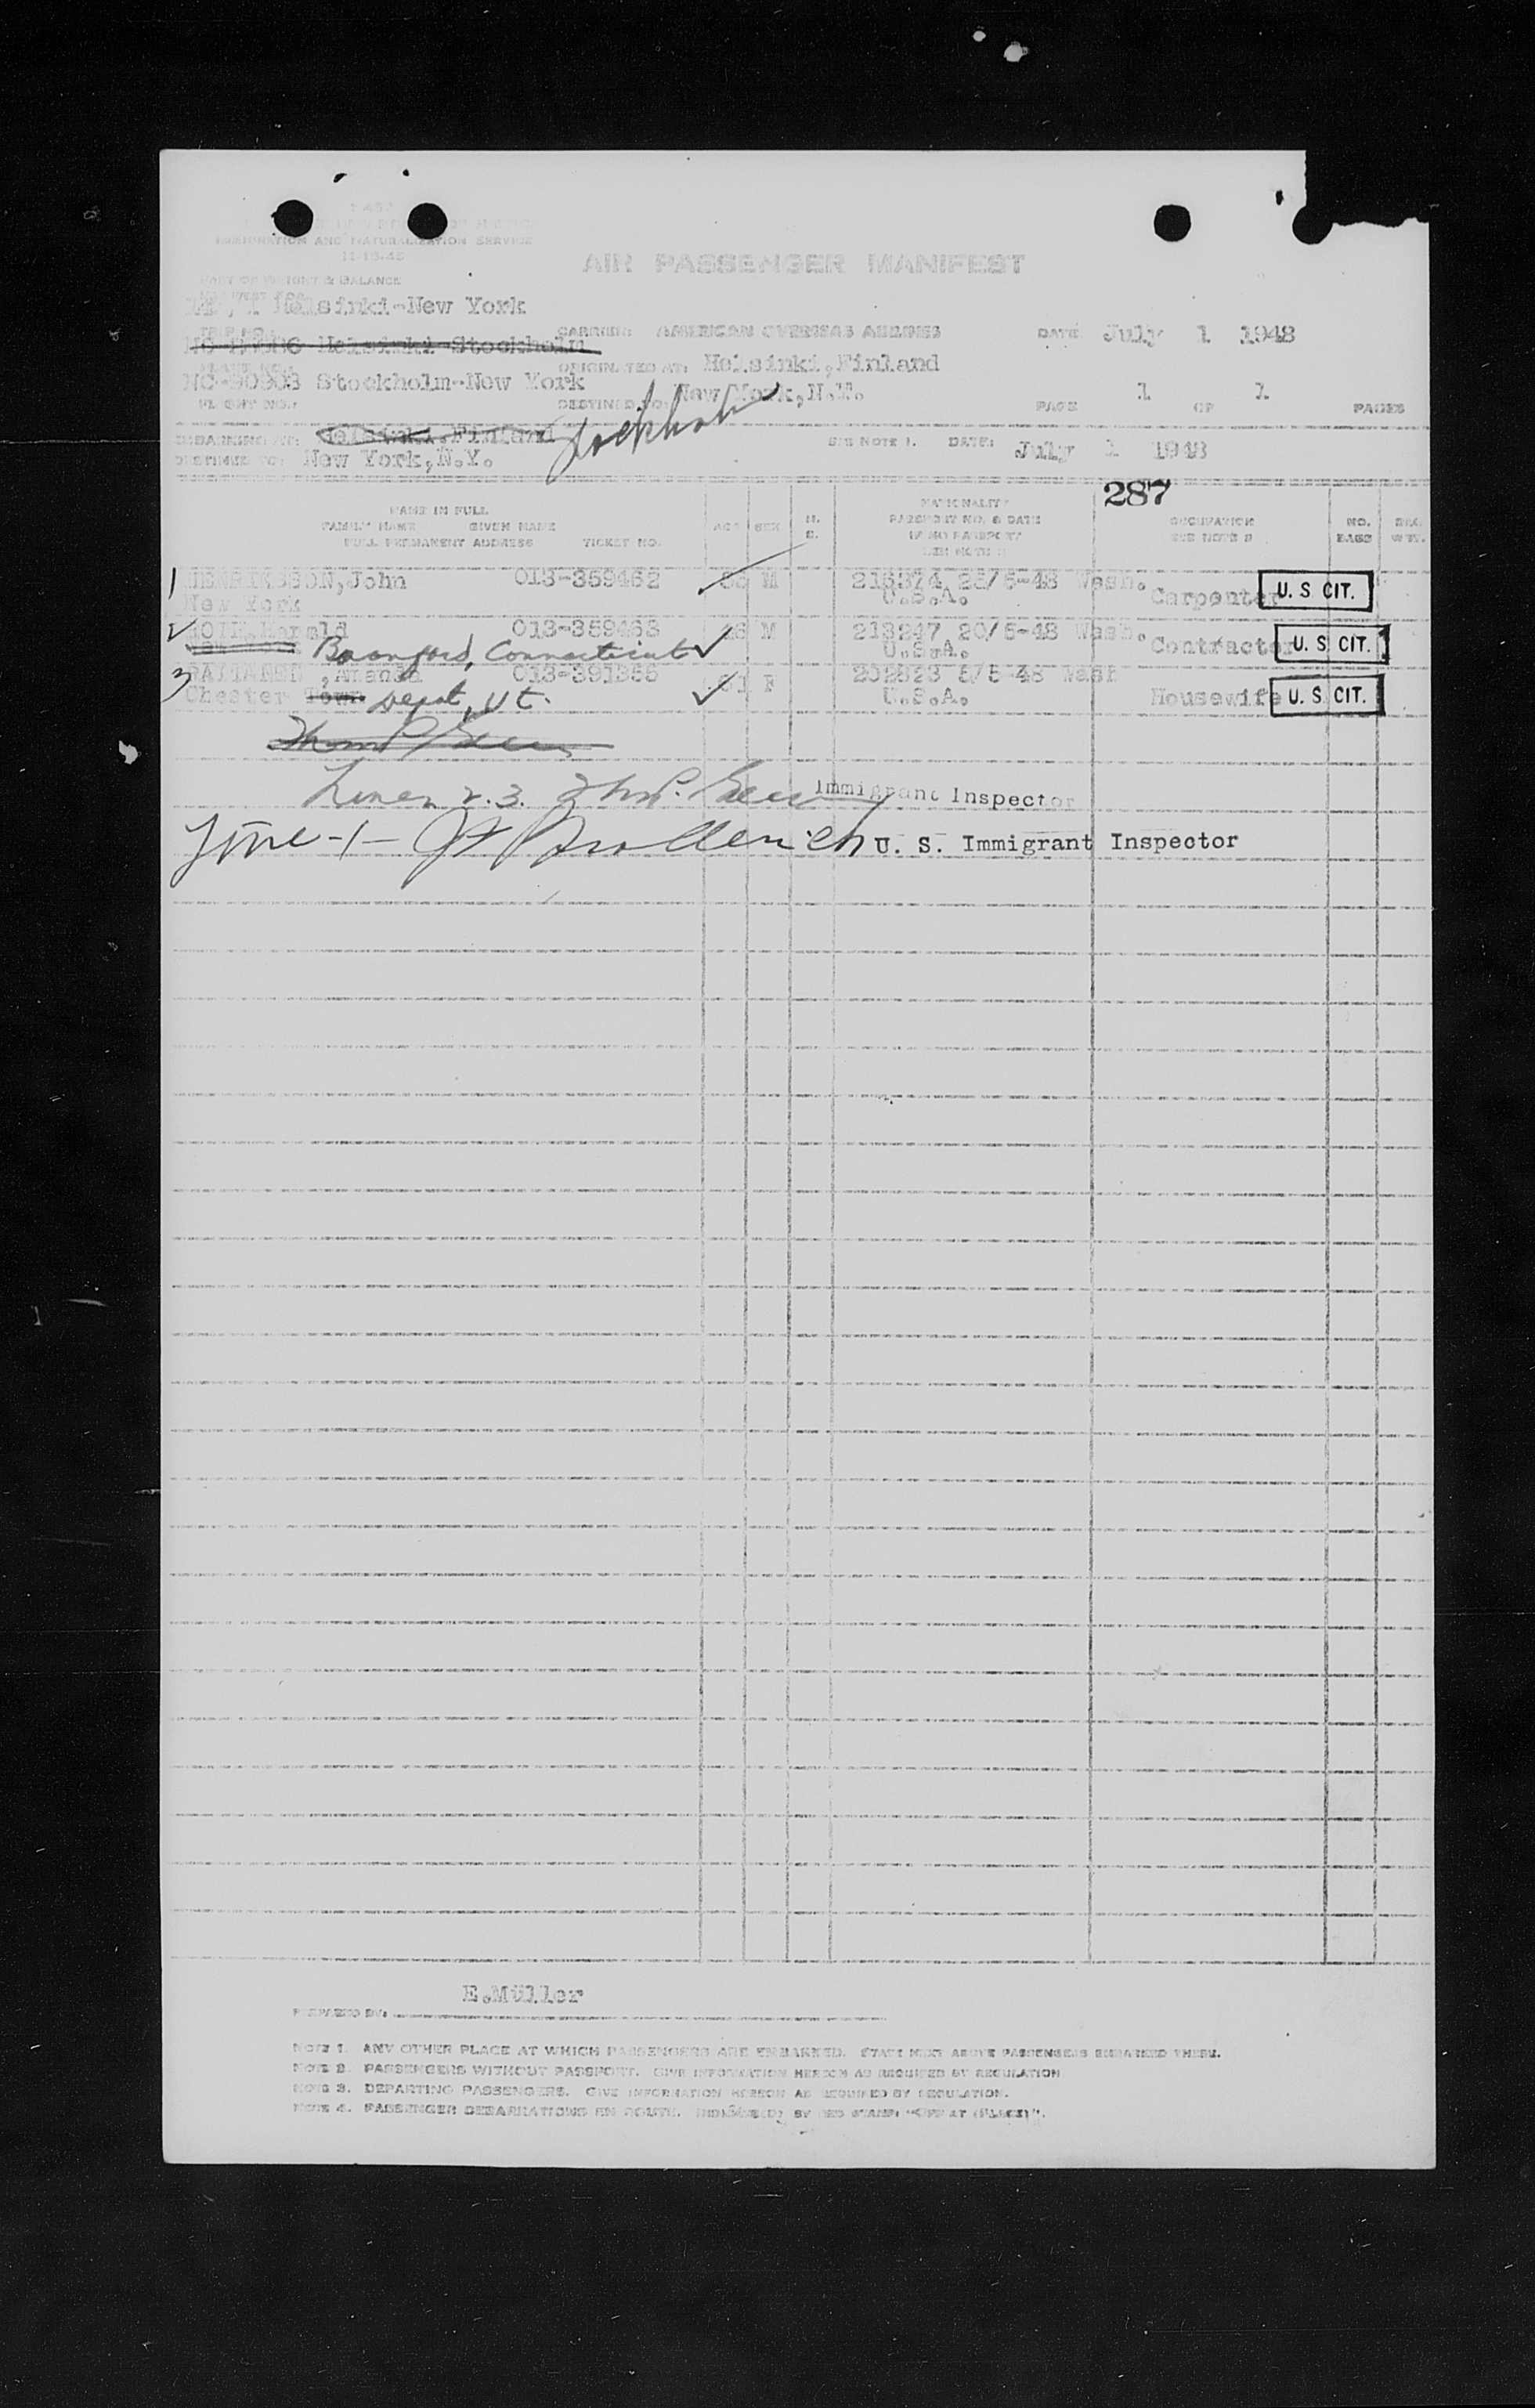 IMMIGRATION AND NATURALIZATION SERVICE
AIR PASSENGER MANIFEST
PART OF WEIGHT & BALANCE
Helsinki-New York
TRIP NO.:
CARRIER: AMERICAN OVERSEAS AIRLINES
DATE July 1 1948
Helsinki-Stockholm
ORIGINATED AT: Helsinki, Finland
NC-90903 Stockholm-New York
FLIGHT NO.:
DESTINED TO: New York, N.Y.
PAGE 1 OF 1 PAGES
EMBARKING AT: Helsinki, Finland Stockholm
SEE NOTE 1. DATE: July 1 1948
DESTINED TO: New York, N.Y.
287
NAME IN FULL
FAMILY NAME GIVEN NAME
FULL PERMANENT ADDRESS TICKET NO.
AGE SEX M. S.
NATIONALITY
PASSPORT NO. & DATE
IF NO PASSPORT
SEE NOTE 2
OCCUPATION
SEE NOTE 3
NO. BAGS
WT.
1 HENRIKSSON, John 013-359462 M 216374 25/5-48 Wash. Carpenter U. S. CIT.
New York U.S.A.
2 Harald 013-359463 M 213247 20/5-48 Wash. Contractor U. S. CIT.
Connecticut U.S.A.
3 013-391355 F 202523 5/5-48 Wash Housewife U. S. CIT.
Chester Town Depot, Vt. U.S.A.
Lines 2.3. Immigrant Inspector
Line -1- U. S. Immigrant Inspector
E.Müller
PREPARED BY:
NOTE 1. ANY OTHER PLACE AT WHICH PASSENGERS ARE EMBARKED. STATE NEXT ABOVE PASSENGERS EMBARKED THERE.
NOTE 2. PASSENGERS WITHOUT PASSPORT. GIVE INFORMATION HEREON AS REQUIRED BY REGULATION
NOTE 3. DEPARTING PASSENGERS. GIVE INFORMATION HEREON AS REQUIRED BY REGULATION.
NOTE 4. PASSENGER DEBARKATIONS EN ROUTE. INDICATED BY RED STAMP: "OFF AT (PLACE)".